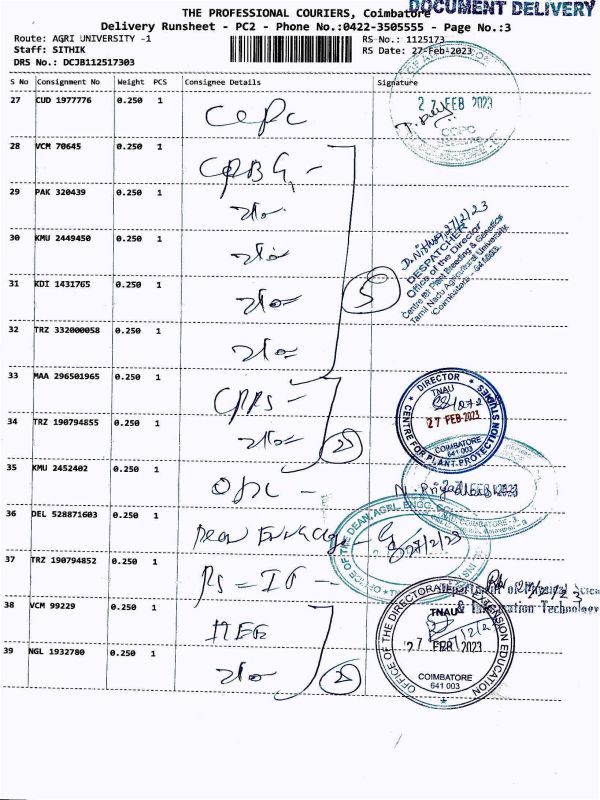 THE PROFESSIONAL COURIERS, Coimbatore
DOCUMENT DELIVERY
Delivery Runsheet - PC2 - Phone No.:0422-3505555 - Page No.:3
Route: AGRI UNIVERSITY -1
RS-No.: 1125173
Staff: SITHIK
RS Date: 27-Feb-2023
DRS No.: DCJB112517303
S No Consignment No Weight PCS Consignee Details Signature
27 CUD 1977776 0.250 1
27 FEB 2023
CCPC
28 VCM 70645 0.250 1 CPBG -
29 PAK 320439 0.250 1
27/2/23
DESPATCHER
Office of the Director
Centre for Plant Breeding & Genetics
Tamil Nadu Agricultural University
Coimbatore - 641003.
30 KMU 2449450 0.250 1
31 KDI 1431765 0.250 1
5
32 TRZ 332000058 0.250 1
33 MAA 296501965 0.250 1 CPPS -
DIRECTOR
TNAU
27 FEB 2023
COIMBATORE
641 003
CENTRE FOR PLANT PROTECTION STUDIES
34 TRZ 190794855 0.250 1
2
35 KMU 2452402 0.250 1
COIMBATORE - 3.
36 DEL 528871603 0.250 1 Dean
OFFICE OF THE DEAN, AGRI. ENGG.
27/2/23
37 TRZ 190794852 0.250 1 PS = IT -
Department of Physical Science
& Information Technology
38 VCM 99229 0.250 1
OFFICE OF THE DIRECTORATE OF EXTENSION EDUCATION
TNAU
27 FEB 2023
COIMBATORE
641 003
39 NGL 1932780 0.250 1
2